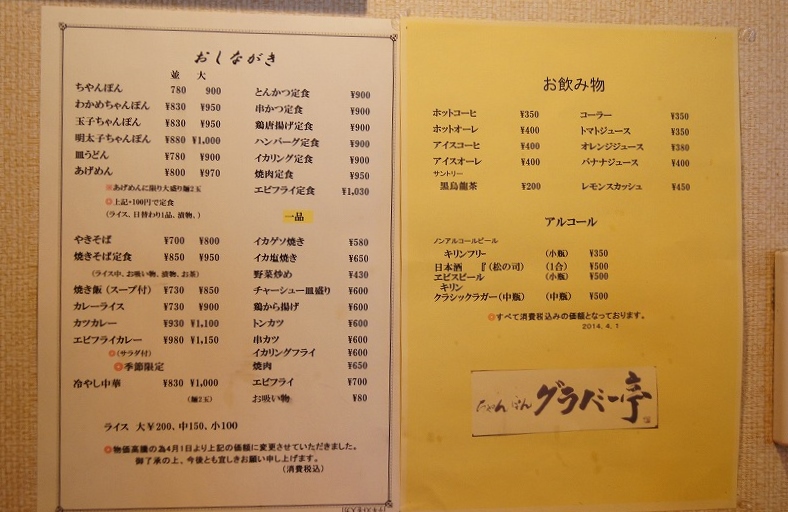 おしながき
並 大
ちゃんぽん 780 900
わかめちゃんぽん ¥830 ¥950
玉子ちゃんぽん ¥830 ¥950
明太子ちゃんぽん ¥880 ¥1,000
皿うどん ¥780 ¥900
あげめん ¥800 ¥970
※あげめんに限り大盛り麺2玉
◎上記+100円で定食
(ライス、日替わり1品、漬物、)
やきそば ¥700 ¥800
焼きそば定食 ¥850 ¥950
(ライス中、お吸い物、漬物、お茶)
焼き飯(スープ付) ¥730 ¥850
カレーライス ¥730 ¥900
カツカレー ¥930 ¥1,100
エビフライカレー ¥980 ¥1,150
◎(サラダ付)
◎季節限定
冷やし中華 ¥830 ¥1,000
(麺2玉)
とんかつ定食 ¥900
串かつ定食 ¥900
鶏唐揚げ定食 ¥900
ハンバーグ定食 ¥900
イカリング定食 ¥900
焼肉定食 ¥950
エビフライ定食 ¥1,030
一品
イカゲソ焼き ¥580
イカ塩焼き ¥650
野菜炒め ¥430
チャーシュー皿盛り ¥600
鶏から揚げ ¥600
トンカツ ¥600
串カツ ¥600
イカリングフライ ¥600
焼肉 ¥650
エビフライ ¥700
お吸い物 ¥80
ライス 大¥200、中150、小100
◎物価高騰の為4月1日より上記の価額に変更させていただきました。
御了承の上、今後とも宜しきお願い申し上げます。
(消費税込)
お飲み物
ホットコーヒ ¥350
ホットオーレ ¥400
アイスコーヒ ¥400
アイスオーレ ¥400
サントリー
黒烏龍茶 ¥200
コーラー ¥350
トマトジュース ¥350
オレンジジュース ¥380
バナナジュース ¥400
レモンスカッシュ ¥450
アルコール
ノンアルコールビール
キリンフリー (小瓶) ¥350
日本酒 『(松の司) (1合) ¥500
エビスビール (小瓶) ¥500
キリン
クラシックラガー(中瓶) (中瓶) ¥500
◎すべて消費税込みの価額となっております。
2014.4.1
ちゃんぽん グラバー亭